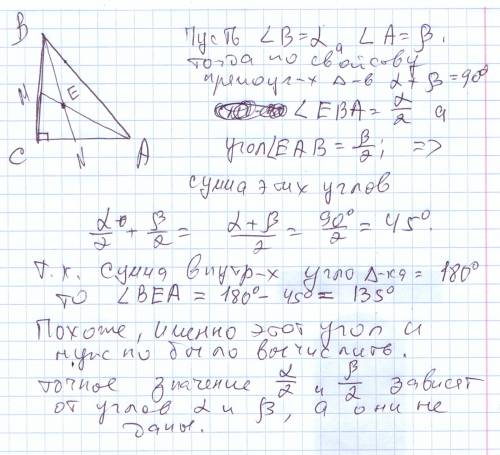 B
M
E
C
N
A
Пусть ∠B=α, а ∠A=β,
тогда по свойству
прямоуг-х Δ-в α+β=90°
∠EBA = α/2 а
угол∠EAB = β/2; =>
сумма этих углов
α/2 + β/2 = (α+β)/2 = 90°/2 = 45°.
Т.к. сумма внутр-х угло Δ-ка = 180°
то ∠BEA = 180° - 45° = 135°
Похоже, именно этот угол и
нужно было вычислить.
точное значение α/2 и β/2 зависят
от углов α и β, а они не
даны.